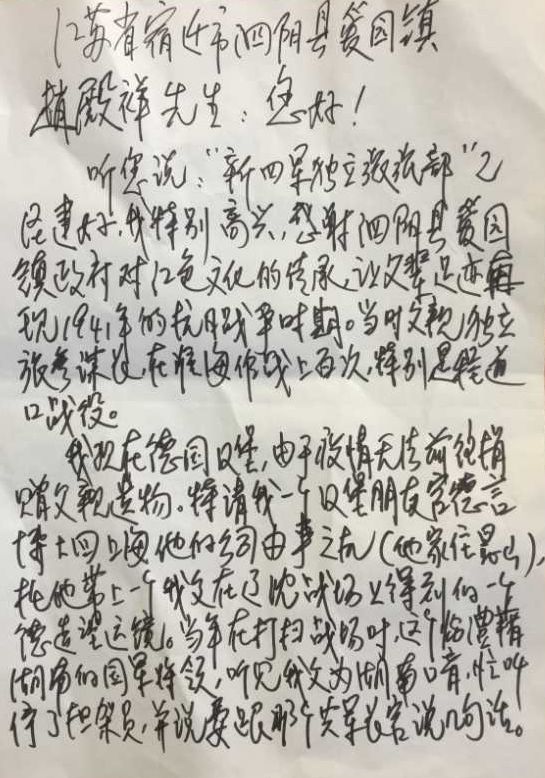 江苏省宿迁市泗阳县爱园镇
趙殿祥先生:您好!
听您说:"新四军独立旅旅部"已
经建好,我特别高兴,感谢泗阳县爱园
镇政府对红色文化的传承,让父辈足迹再
现1941年的抗日战争时期。当时父亲独立
旅参谋长,在淮海作战上百次,特别是程道
口战役。
我现在德国汉堡,由于疫情无法前往捐
赠父亲遗物。特请我一个汉堡朋友言
博士回上海他的公司由事之机(他家住昆山),
托他带上一个我父在辽沈战场上得到的一个
德造望远镜。当年在打扫战场时,这个
湖南的国军将领,听见我父为湖南口音,忙叫
停了担架员,并说要跟那个共军长官说几句话。